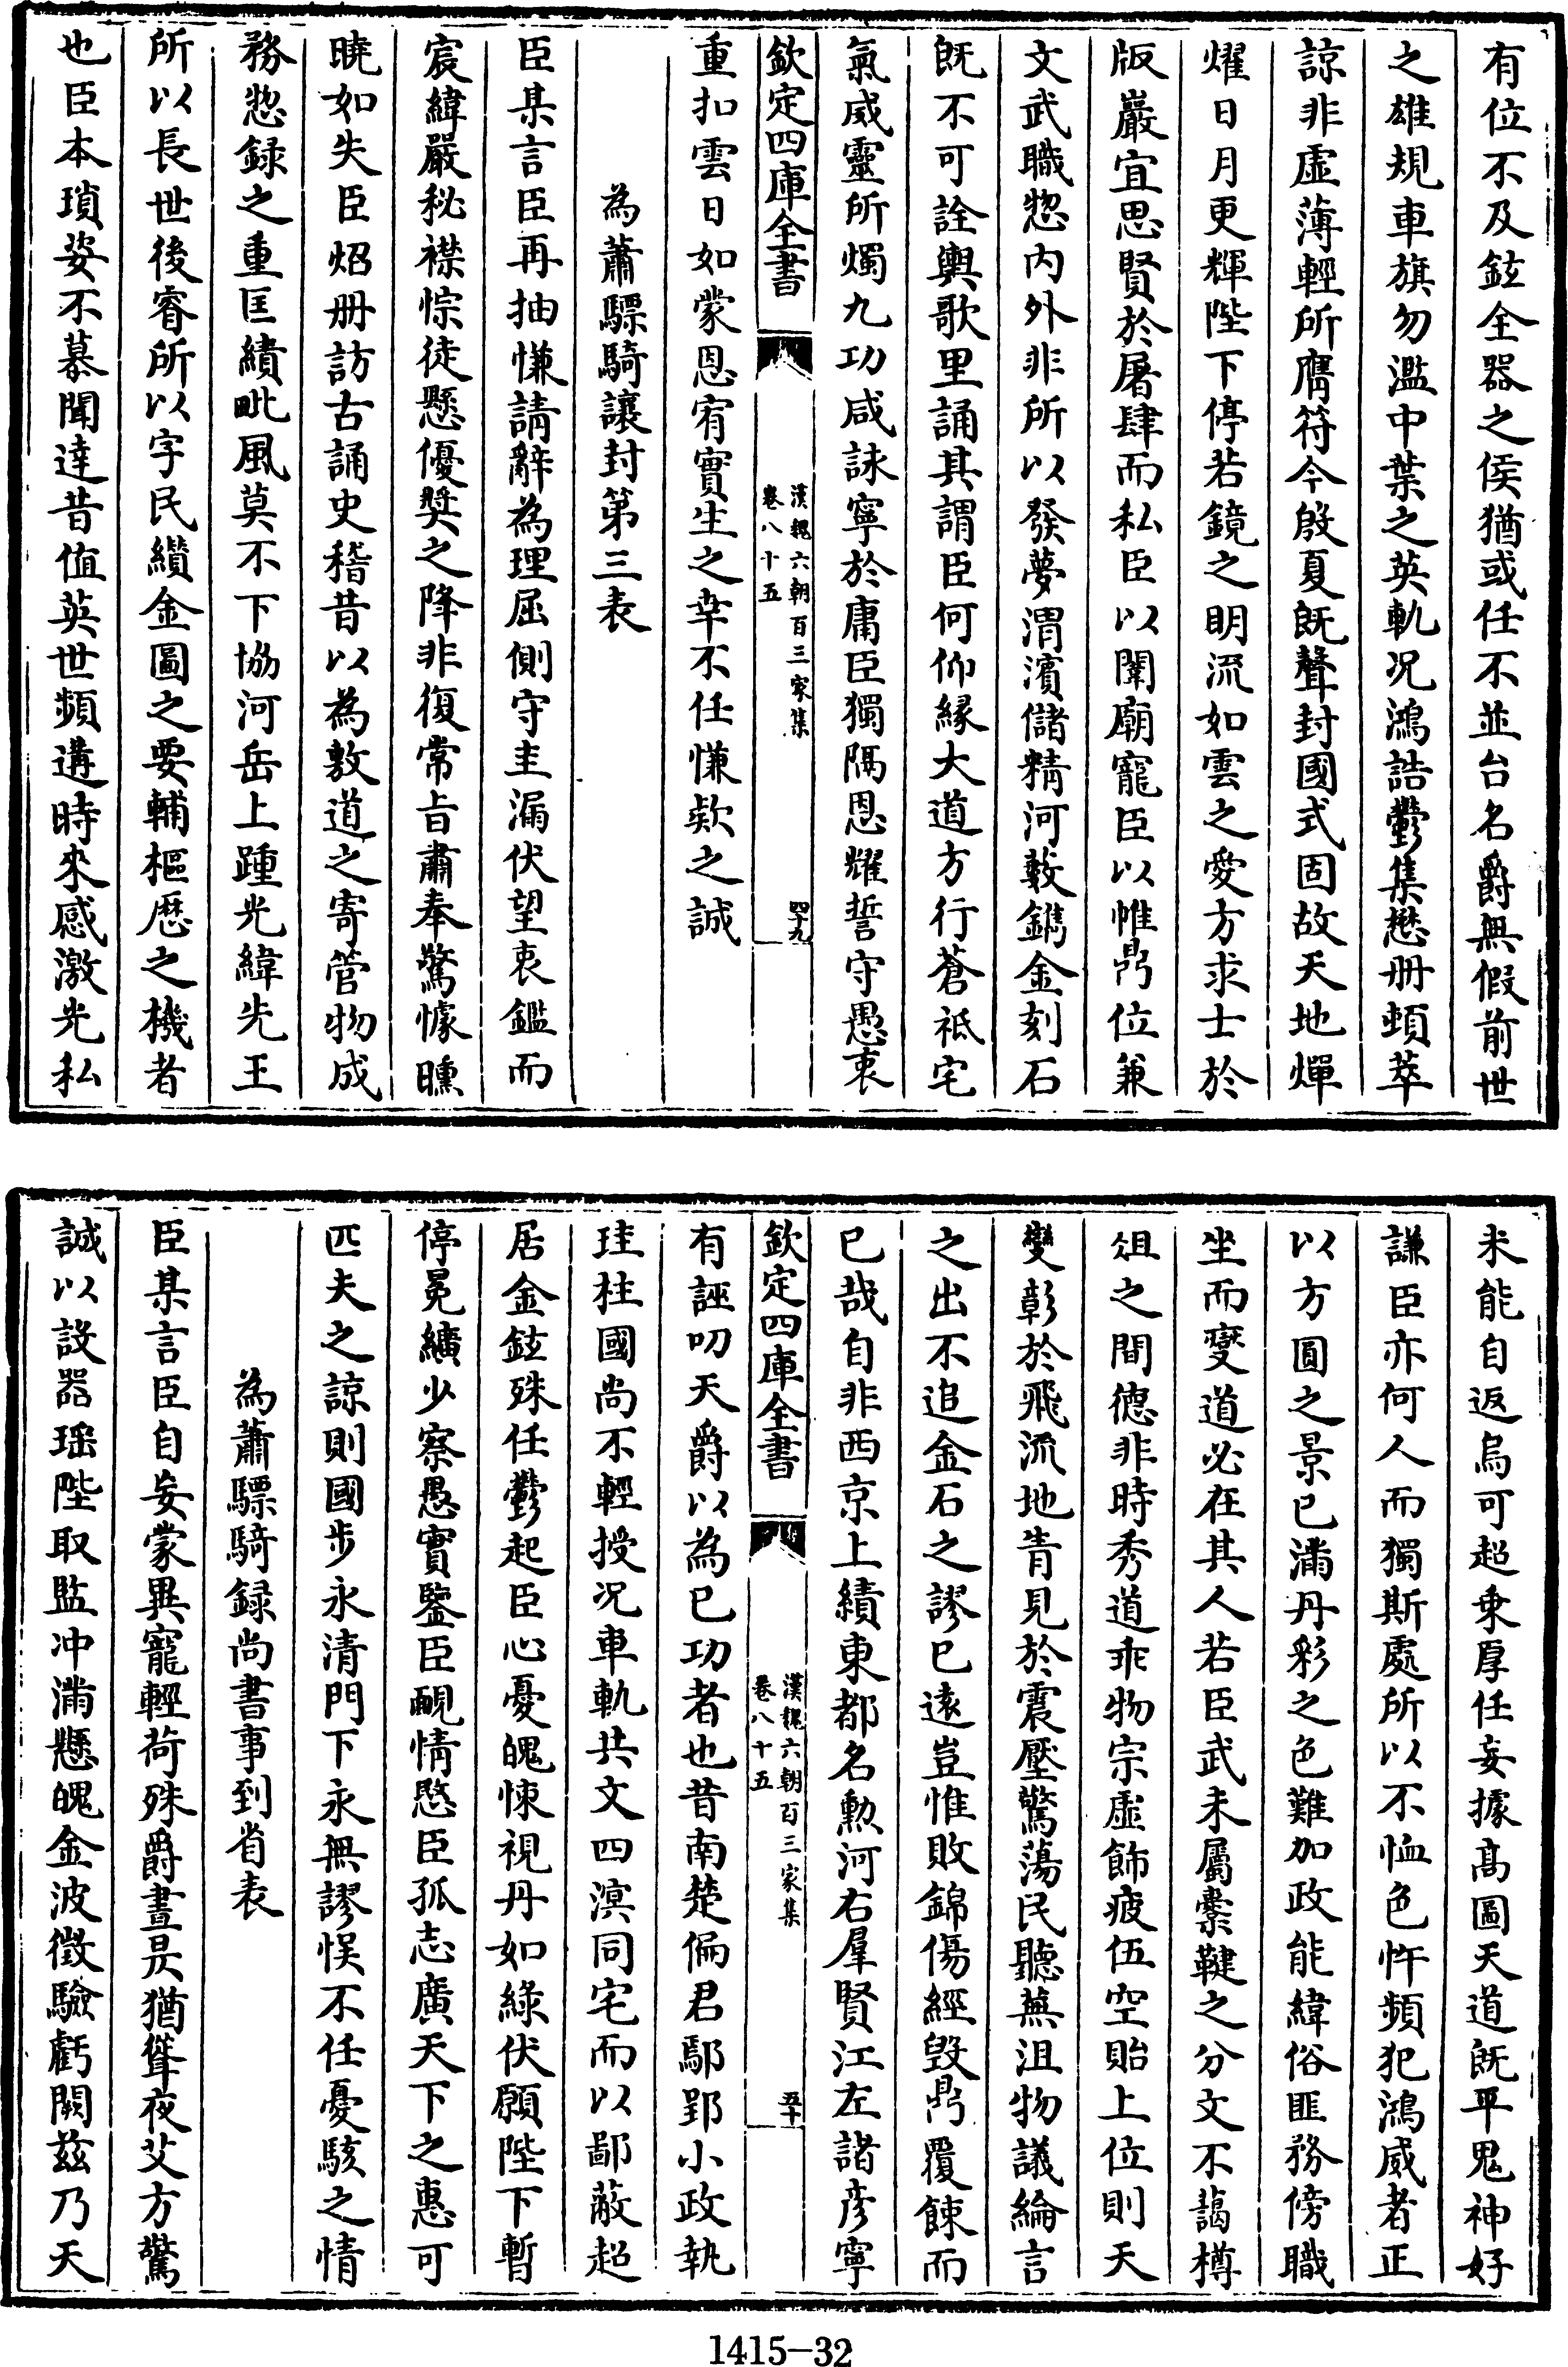 有位不及鉉全器之侯猶或任不並台名爵無假前世
之雄規車旗勿濫中葉之英軌况鴻誥鬱集懋册頓萃
諒非虚薄輕所膺符今啟夏既聲封國式固故天地煇
燿日月更輝陛下停若鏡之明流如雲之愛方求士於
版巖宜思賢於屠肆而私臣以闡廟寵臣以帷鼎位兼
文武職惣内外非所以發夢渭濱儲精河藪鐫金刻石
既不可詮輿歌里誦其謂臣何仰緣大道方行蒼祗宅
氣威靈所燭九功咸詠寧於庸臣獨隔恩耀誓守愚衷
欽定四庫全書
漢魏六朝百三家集
卷八十五
四十九
重扣雲日如蒙恩宥實生之幸不任慊欵之誠
為蕭驃騎讓封第三表
臣某言臣再抽慊請辭為理屈側守圭漏伏望衷鑑而
宸緯嚴秘襟悰徒懸優奬之降非復常㫖肅奉驚懅曛
曉如失臣炤册訪古誦史稽昔以為敦道之寄管物成
務惣録之重匡績毗風莫不下恊河岳上踵光緯先王
所以長世後睿所以字民纘金圖之要輔樞厯之機者
也臣本瑣姿不慕聞達昔值英世頻遘時來感激光私
未能自返烏可超乗厚任妄據髙圖天道既平鬼神好
謙臣亦何人而獨斯處所以不恤色忤頻犯鴻威者正
以方圓之景已滿丹彩之色難加政能緯俗匪務傍職
坐而燮道必在其人若臣武未屬櫜鞬之分文不藹樽
俎之間德非時秀道乖物宗虚飾疲伍空貽上位則天
變彰於飛流地眚見於震壓驚蕩民聽蕪沮物議綸言
之出不追金石之謬已遠豈惟敗錦傷經毁鼎覆餗而
已哉自非西京上績東都名勲河右羣賢江左諸彦寧
欽定四庫全書
漢魏六朝百三家集
卷八十五
五十
有誣叨天爵以為已功者也昔南楚偏君鄢郢小政執
珪柱國尚不輕授况車軌共文四溟同宅而以鄙蔽超
居金鉉殊任鬱起臣心憂魄悚視丹如綠伏願陛下暫
停冕纊少察愚實鑒臣覼情愍臣孤志廣天下之惠可
匹夫之諒則國步永清門下永無謬悮不任憂駭之情
為蕭驃騎録尚書事到省表
臣某言臣自妄蒙異寵輕荷殊爵晝昃猶聳夜艾方驚
誠以設器瑶陛取監冲滿懸魄金波徴驗虧闕兹乃天
1415-32